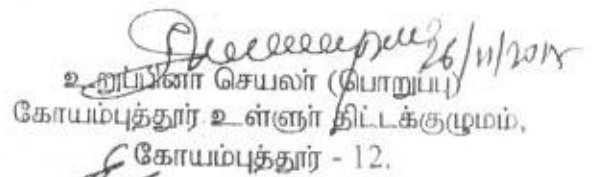 26/11/2015
உறுப்பினர் செயலர் (பொறுப்பு)
கோயம்புத்தூர் உள்ளூர் திட்டக்குழுமம்,
கோயம்புத்தூர் - 12.